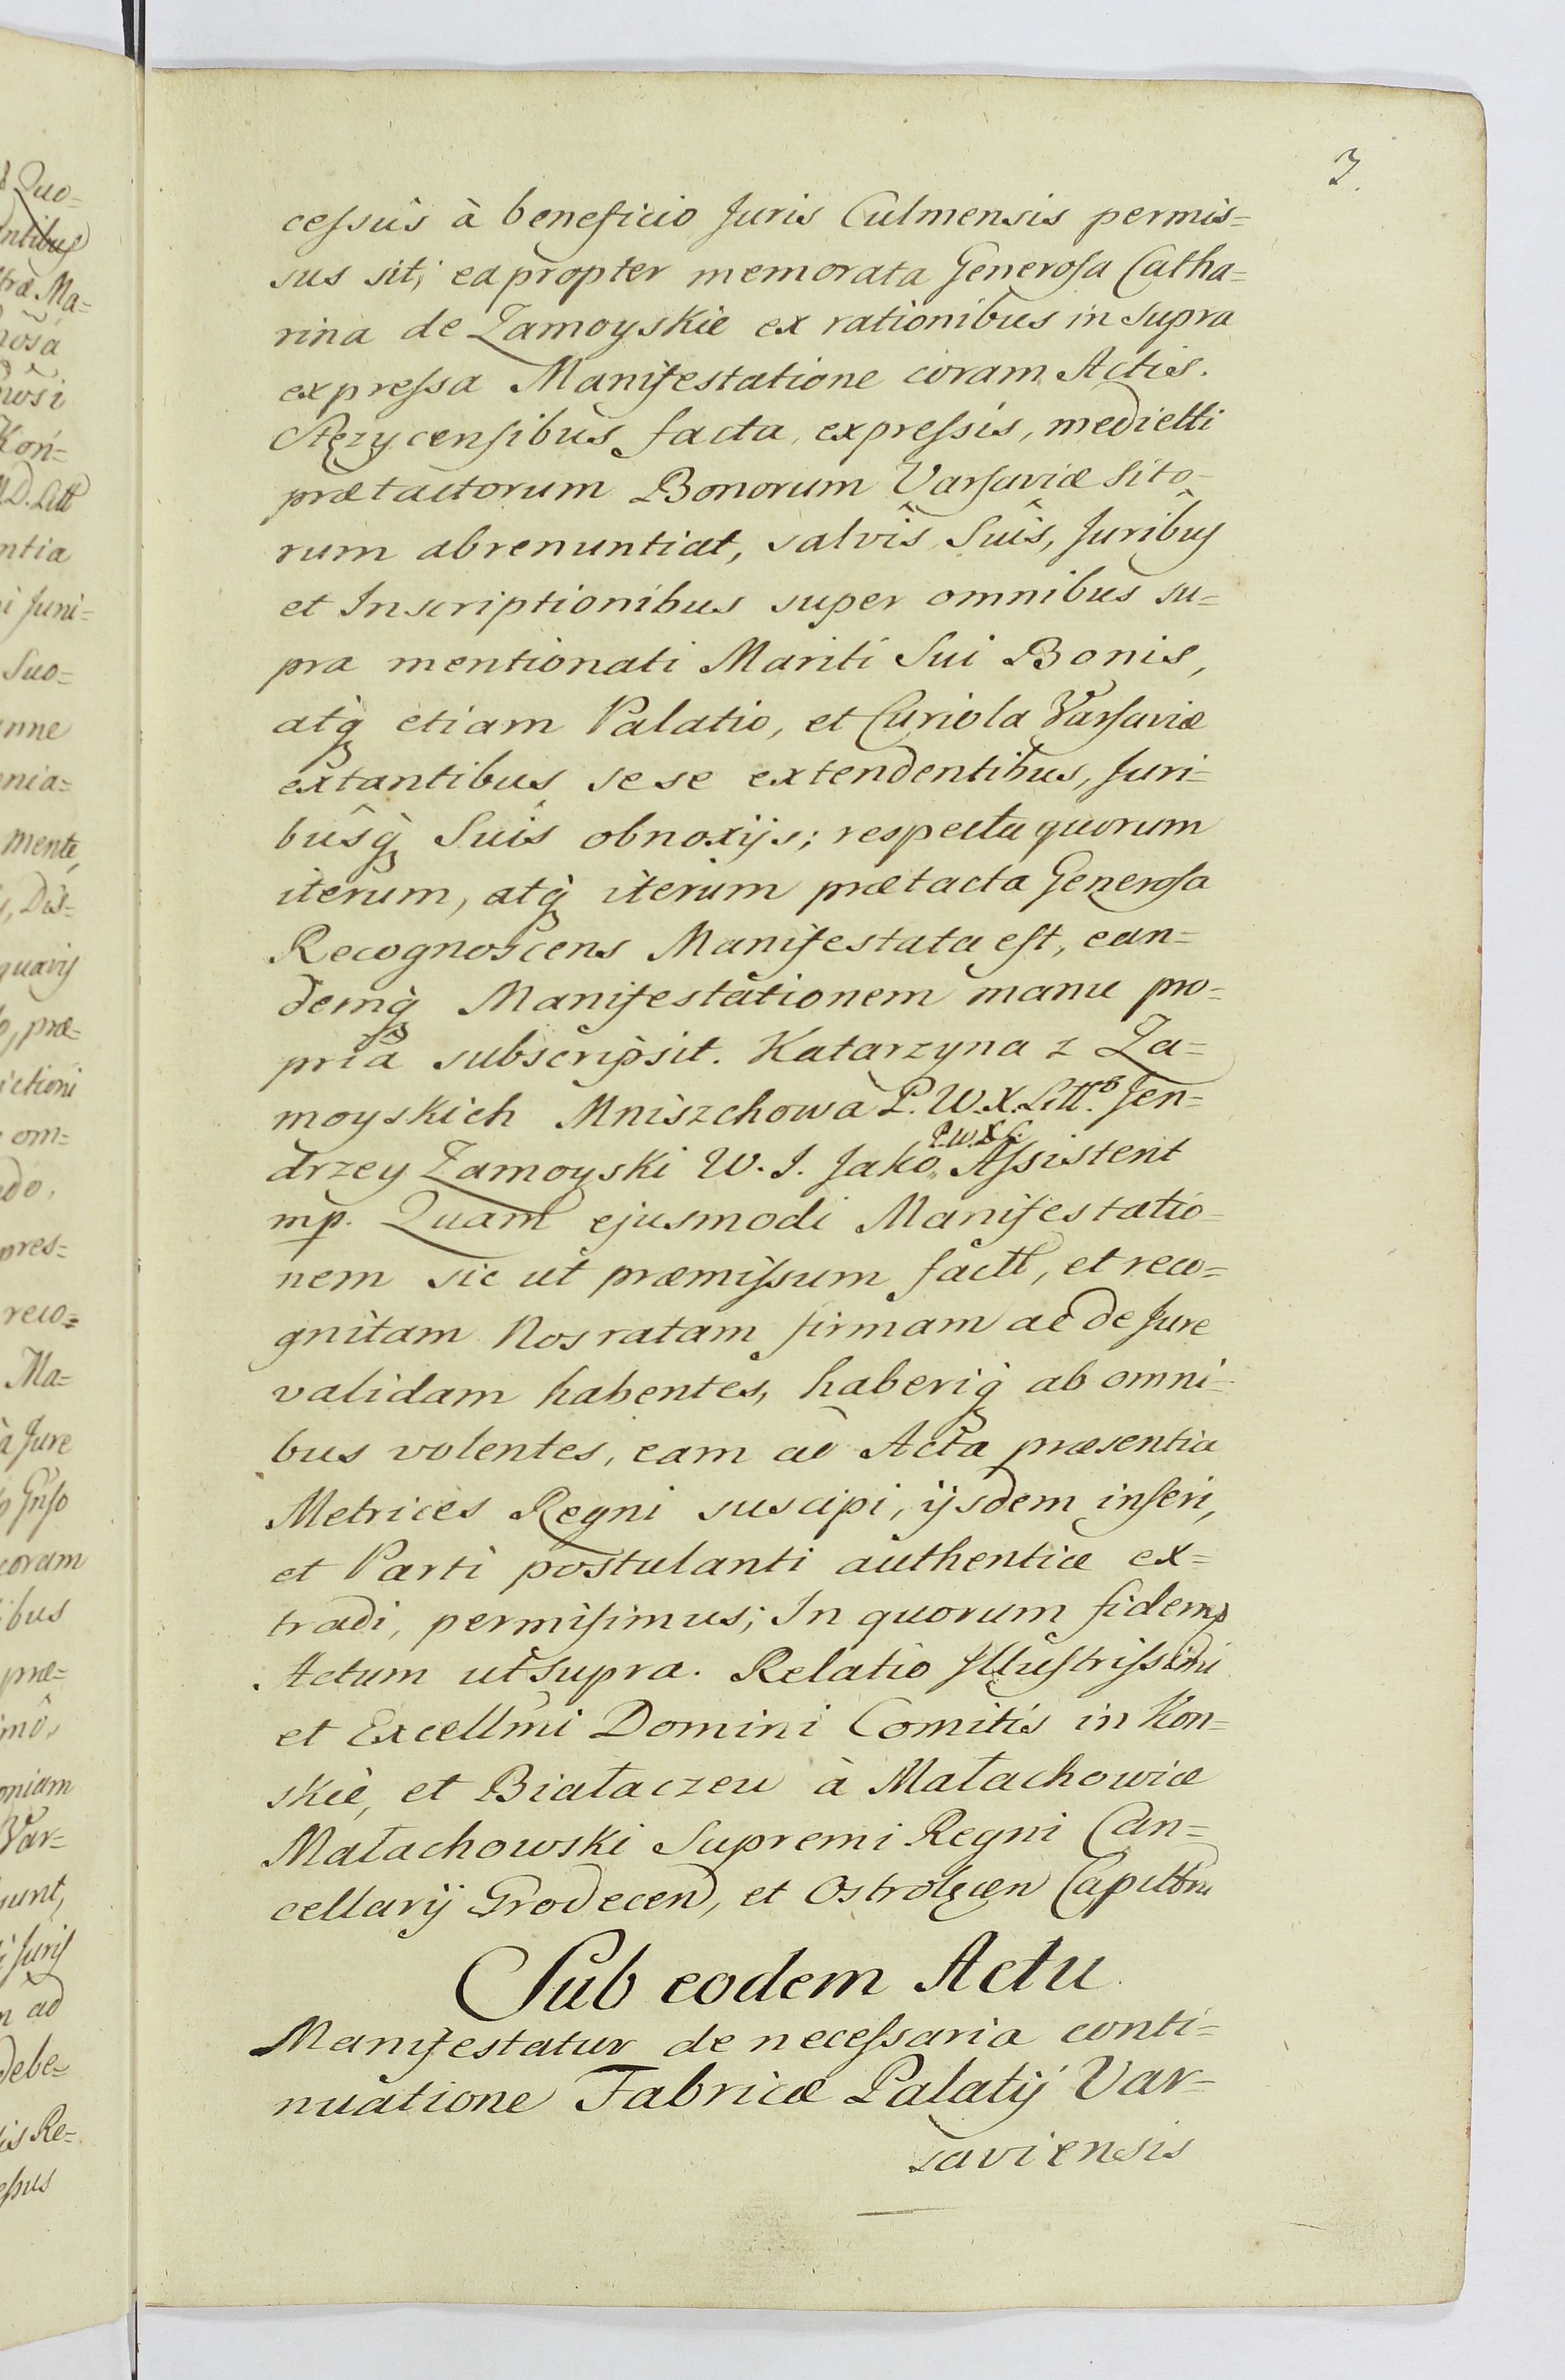 3.
cessûs à beneficio Juris Culmensis permis=
sus sit; ea propter memorata Generosa Catha=
rina de Zamoyskie ex rationibus in supra
expressa Manifestatione coram Actis.
Stęzycensibus facta, expressis, mediett̃i
prætactorum Bonorum Varsaviæ sito=
rum abrenuntiat, salvîs Suîs, Juribûs
et Inscriptionibus super omnibus su=
pra mentionati Mariti Sui Bonis,
atq̀ etiam Palatio, et Curiola Varsaviæ
extantibus sese extendentibus, Juri=
bûsq̀ Suîs obnoxijs; respectu quorum
iterum, atq̀ iterum prætacta Generosa
Recognoscens Manifestata est, ean=
demq̀ Manifestationem manu pro=
pria subscripsit. Katarzyna z Za=
moyskich Mniszchowa P. W. X. Litt.º Jen=
drzey Zamoyski W. I. Jako P. W. X. L. Assistent
mp. Quam ejusmodi Manifestatio=
nem sic ut præmissum factt, et reco=
gnitam Nos ratam firmam ac de Jure
validam habentes, haberiq̀ ab omni=
bus volentes, eam ad Acta præsentia
Metrices Regni suscipi, ijsdem inseri,
et Parti postulanti authenticæ ex=
tradi, permisimus; In quorum fidem
Actum ut supra. Relatio Illustrissimi
et Excellmi Domini Comitis in Kon=
skie, et Białaczew à Małachowice
Małachowski Supremi Regni Can=
cellarij Grodecen, et Ostrołęcen Capittnei
Sub eodem Actu.
Manifestatur de necessaria conti=
nuatione Fabricæ Palatij Var=
saviensis